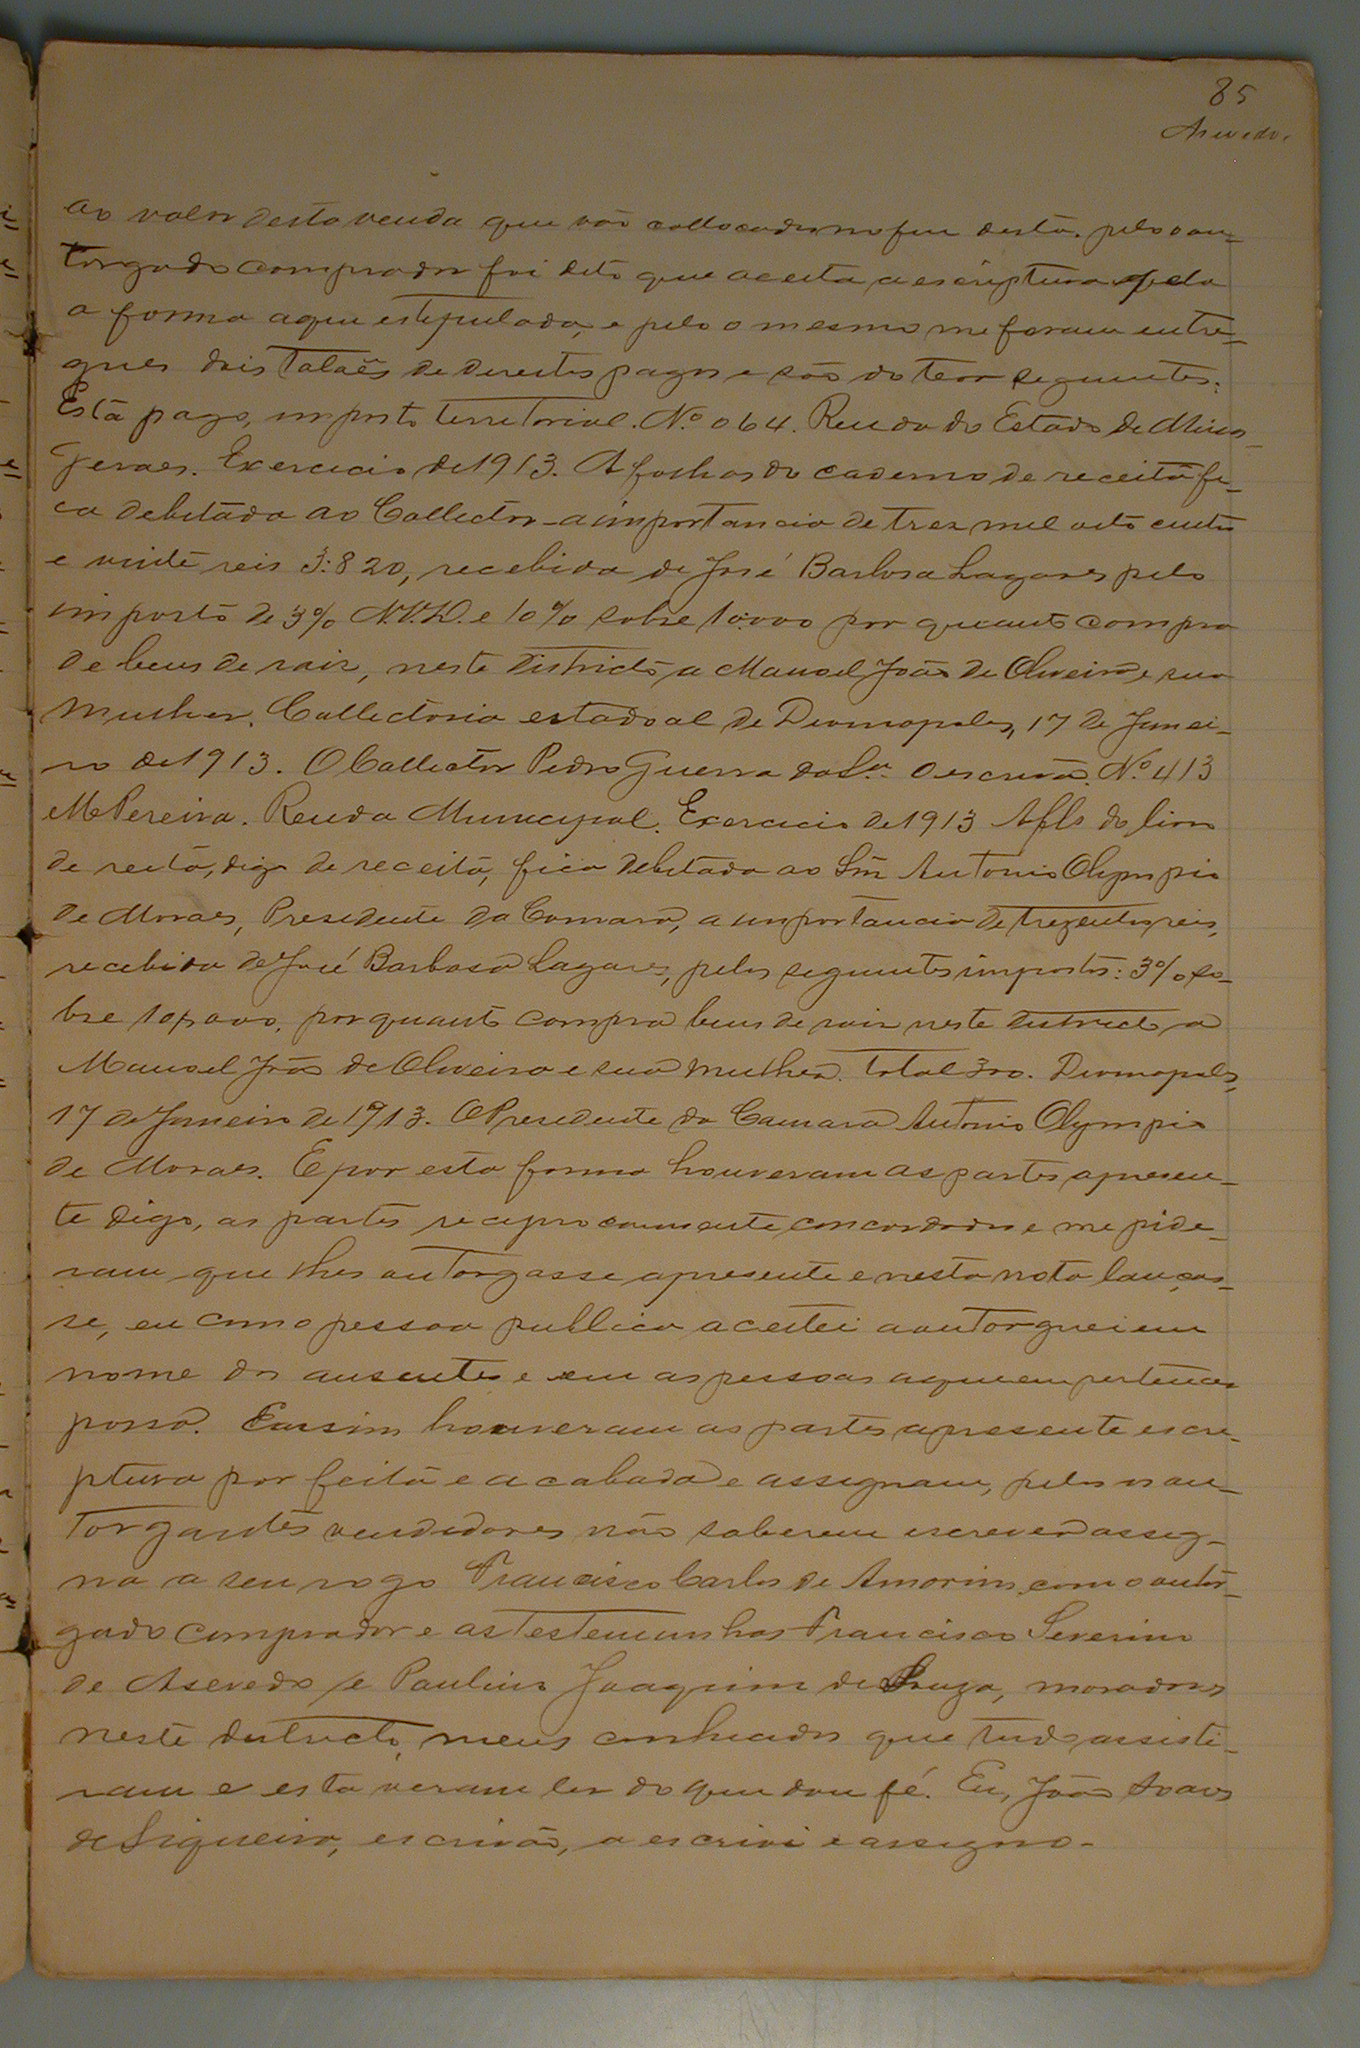 85
Asevedo.
ao valor desta venda que vão collocados no fim desta. pelo ou-
torgado comprador foi dito que aceita a escriptura pela
a forma aqui estipulada, e pelo o mesmo me foram entre-
gues dois Talaẽs de direitos pagos e são do teor seguintes:
Está pago, imposto territorial. Nº 064. Renda do Estado de Minas
Geraes. Exercicio de 1913. A folhas do caderno de receita fi-
ca debitada ao Collector a importancia de tres mil oito centos
e vinte reis 3:820, recebida de José Barbosa Lagares pelo
imposto de 3% N.V.D. e 10% sobre 10:000 por quanto compra
de bens de raiz, neste districto a Manoel João de Oliveira e sua
mulher. Collectoria estadoal de Deonopoles, 17 de Janei-
ro de 1913. O Collector Pedro Guerra da Sª. O escrivão. Nº 413
M Pereira. Renda Municipal. Exercicio de 1913 A fls do livro
de reita, digo de receita, fica debitada ao Snr Antonio Olympio
de Moraes, Presidente da Camara, a importancia de trezentos reis,
recebida de José Barbosa Lagares, pelos seguintes impostos: 3% so-
bre 10$000, por quanto compra bens de raiz neste districto a
Manoel João de Oliveira e sua mulher. Total 300. Deonopoles,
17 de Janeiro de 1913. O Presidente da Camara Antonio Olympio
de Moraes. E por esta forma houveram as partes apresen-
te digo, as partes reciprocamente concordados e me pide-
ram que lhes outorgasse apresente e nesta nota lanças-
se, eu como pessoa publica aceitei a outorguei em
nome dos ausentes e em as pessoas aquem pertencer
possa. E assim houveram as partes apresente escri-
ptura por feita e acabada e assignam, pelos os ou-
torgantes vendedores não saberem escrever assig-
na a seu rogo Francisco Carlos de Amorim, com o outor-
gado comprador e as testemunhas Francisco Severino
de Asevedo e Paulino Joaquim de Souza, moradores
neste districto, meus conhecidos que tudo assisti-
ram e esta veram ler do que dou fé. Eu, João Soares
de Siqueira, escrivão, a escrivi e assigno-